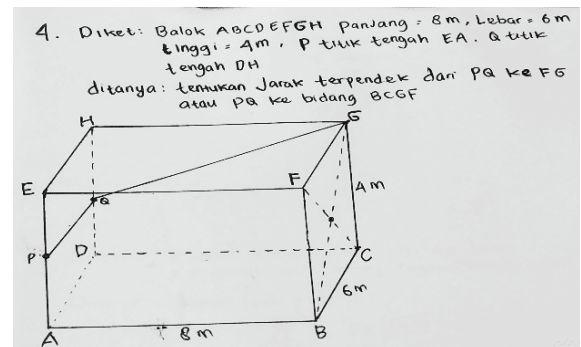 4. Diket: Balok ABCDEFGH Panjang = 8m, Lebar = 6m
tinggi = 4m, P titik tengah EA. Q titik
tengah DH
ditanya: tentukan Jarak terpendek dari PQ ke FG
atau PQ ke bidang BCGF
H
G
E
F
4m
Q
P
D
C
6m
A
8m
B